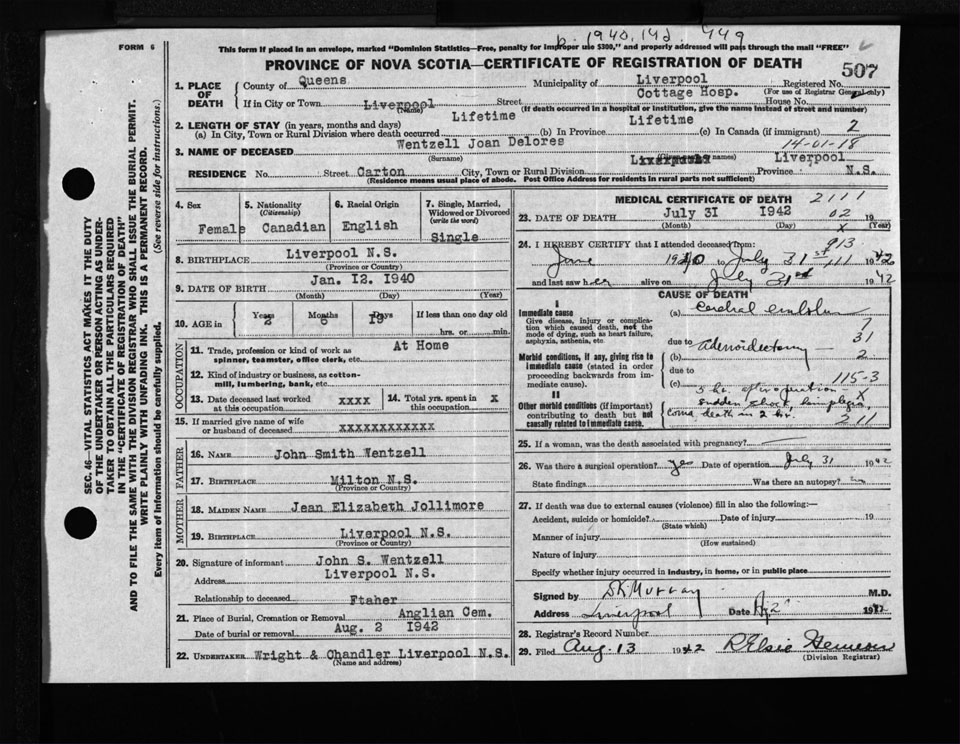 p. 1940, 142. 449
FORM 6
This form if placed in an envelope, marked "Dominion Statistics—Free, penalty for improper use $300," and properly addressed will pass through the mail "FREE"
PROVINCE OF NOVA SCOTIA—CERTIFICATE OF REGISTRATION OF DEATH
507
1. PLACE OF DEATH
County of Queens Municipality of Liverpool Registered No.
Cottage Hosp. (For use of Registrar General only)
If in City or Town Liverpool Street House No.
(Name) (If death occurred in a hospital or institution, give the name instead of street and number)
2. LENGTH OF STAY (in years, months and days) Lifetime Lifetime
(a) In City, Town or Rural Division where death occurred (b) In Province (c) In Canada (if immigrant) 2
3. NAME OF DECEASED Wentzell Joan Delores 14-01-18
(Surname) Liverpool
RESIDENCE No. Street Carton City, Town or Rural Division Liverpool Province N.S.
(Residence means usual place of abode. Post Office Address for residents in rural parts not sufficient)
SEC. 46—VITAL STATISTICS ACT MAKES IT THE DUTY
OF THE UNDERTAKER OR PERSON ACTING AS UNDER-
TAKER TO OBTAIN ALL THE PARTICULARS REQUIRED
IN THE "CERTIFICATE OF REGISTRATION OF DEATH"
AND TO FILE THE SAME WITH THE DIVISION REGISTRAR WHO SHALL ISSUE THE BURIAL PERMIT.
WRITE PLAINLY WITH UNFADING INK. THIS IS A PERMANENT RECORD.
Every item of Information should be carefully supplied. (See reverse side for instructions.)
4. Sex
Female
5. Nationality
(Citizenship)
Canadian
6. Racial Origin
English
7. Single, Married,
Widowed or Divorced
(write the word)
Single
8. BIRTHPLACE Liverpool N.S.
(Province or Country)
9. DATE OF BIRTH Jan. 12. 1940
(Month) (Day) (Year)
10. AGE in Years Months Days If less than one day old
2 6 19 hrs. or min.
OCCUPATION
11. Trade, profession or kind of work as At Home
spinner, teamster, office clerk, etc.
12. Kind of industry or business, as cotton-
mill, lumbering, bank, etc.
13. Date deceased last worked
at this occupation xxxx
14. Total yrs. spent in
this occupation X
15. If married give name of wife
or husband of deceased xxxxxxxxxxxx
FATHER
16. NAME John Smith Wentzell
17. BIRTHPLACE Milton N.S.
(Province or Country)
MOTHER
18. MAIDEN NAME Jean Elizabeth Jollimore
19. BIRTHPLACE Liverpool N.S.
(Province or Country)
20. Signature of informant John S. Wentzell
Address Liverpool N.S.
Relationship to deceased Ftaher
21. Place of Burial, Cremation or Removal Anglian Cem.
Date of burial or removal Aug. 2 1942
22. UNDERTAKER Wright & Chandler Liverpool N.S.
(Name and address)
MEDICAL CERTIFICATE OF DEATH 2111
23. DATE OF DEATH July 31 1942 02 19
(Month) (Day) X (Year)
24. I HEREBY CERTIFY that I attended deceased from: 913
June 1940 to July 31st 111 1942
and last saw her alive on July 31st 1942
CAUSE OF DEATH
I
Give disease, injury or complica-
tion which caused death, not the
mode of dying, such as heart failure,
asphyxia, asthenia, etc.
(a) Cerebral embolus
7
31
due to
Morbid conditions, if any, giving rise to
Immediate cause (stated in order
proceeding backwards from im-
mediate cause).
(b) adenoidectomy 2
due to
(c) 115-3
5 hr. after operation X
II
Other morbid conditions (if important)
contributing to death but not
causally related to immediate cause.
sudden shock, hemiplegia,
coma death in 2 hr. 211
25. If a woman, was the death associated with pregnancy?
26. Was there a surgical operation? yes Date of operation July 31 1942
State findings Was there an autopsy? no
27. If death was due to external causes (violence) fill in also the following:—
Accident, suicide or homicide? Date of injury 19
(State which)
Manner of injury
(How sustained)
Nature of injury
Specify whether injury occurred in industry, in home, or in public place
Signed by DK Murray M.D.
Address Liverpool Date 1942
28. Registrar's Record Number
29. Filed Aug. 13 1942 R Elsie
(Division Registrar)